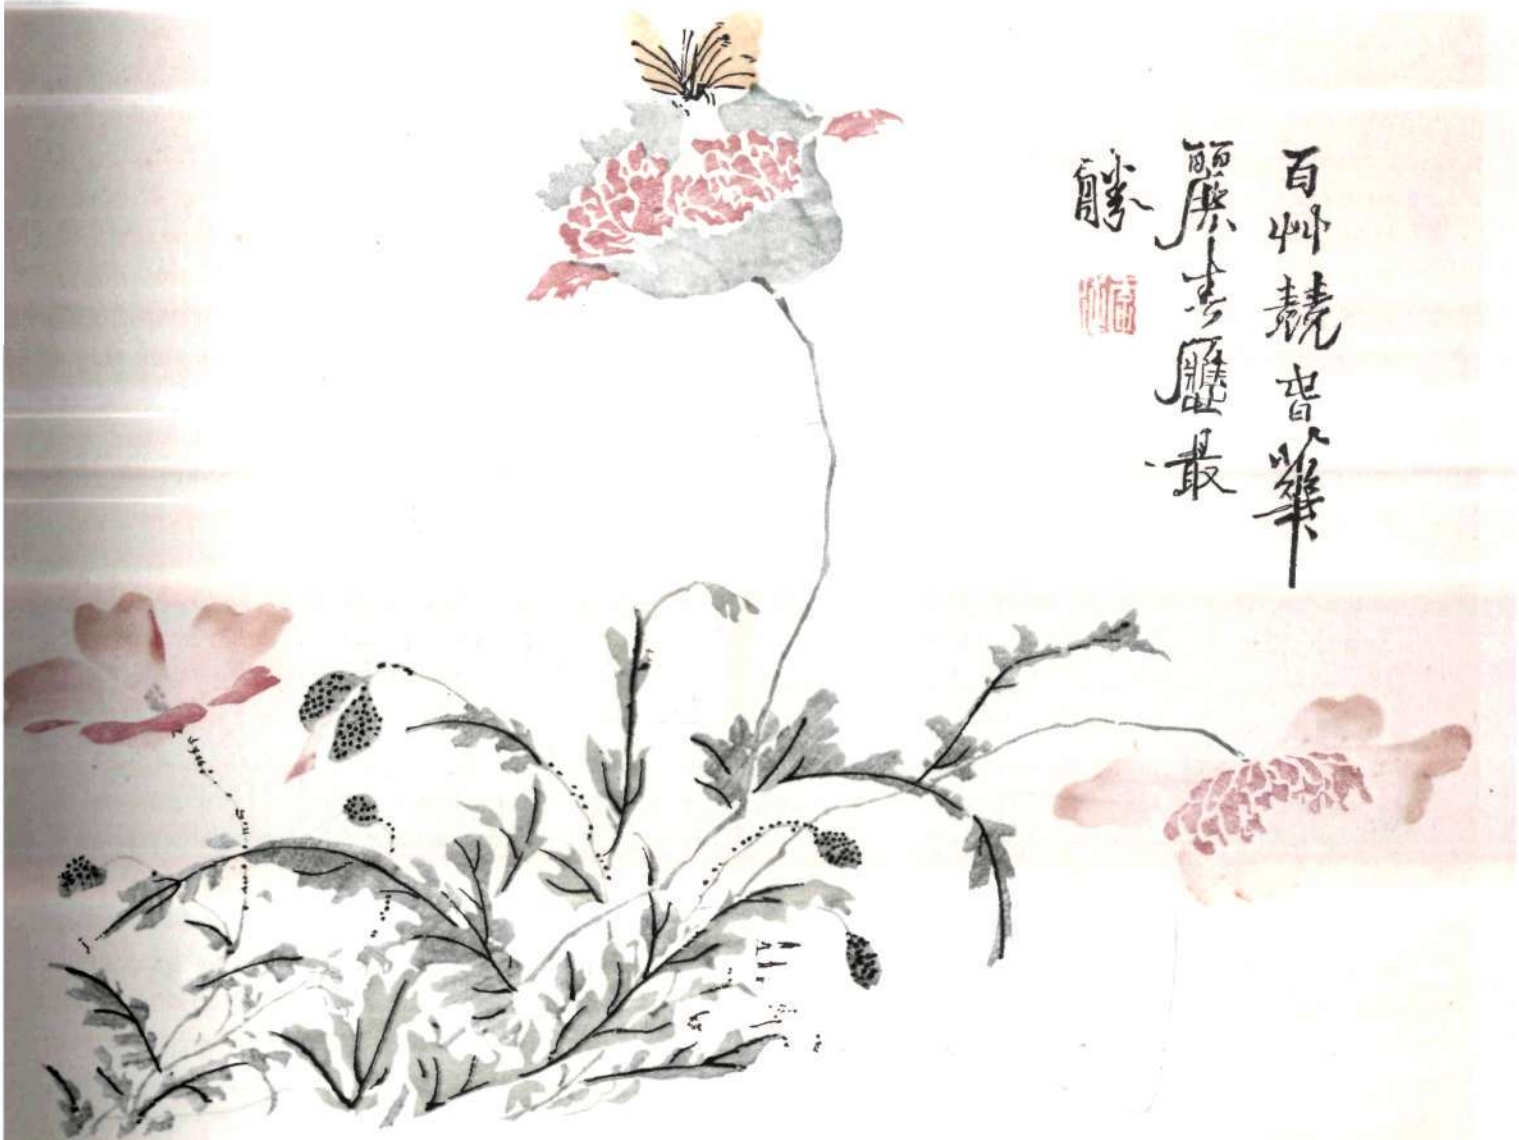 百艸競旾華
麗春應最
勝